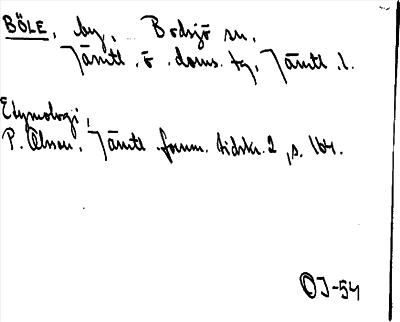 BÖLE, by, Bodsjö sn,
Jämtl. ö. doms. tg, Jämtl. l.
Etymologi:
P. Olsson, Jämtl. fornm. tidskr. 2, s. 164.
OJ-54